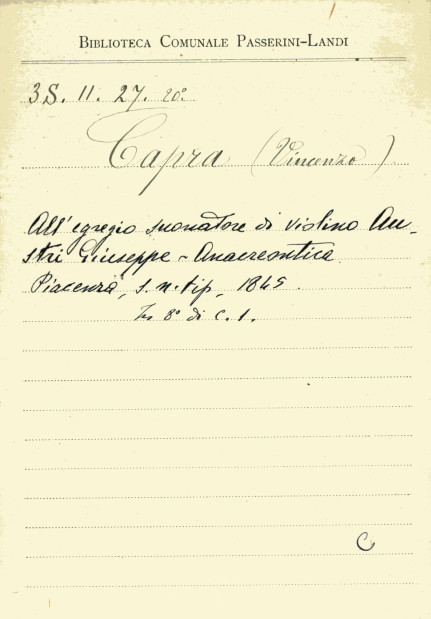 BIBLIOTECA COMUNALE PASSERINI-LANDI
3S. 11. 27. 20º.
Capra (Vincenzo)
All'egregio suonatore di violino Au-
stri Giuseppe - Anacreontica
Piacenza, s. n. tip, 1845.
In 8º di c. 1.
C